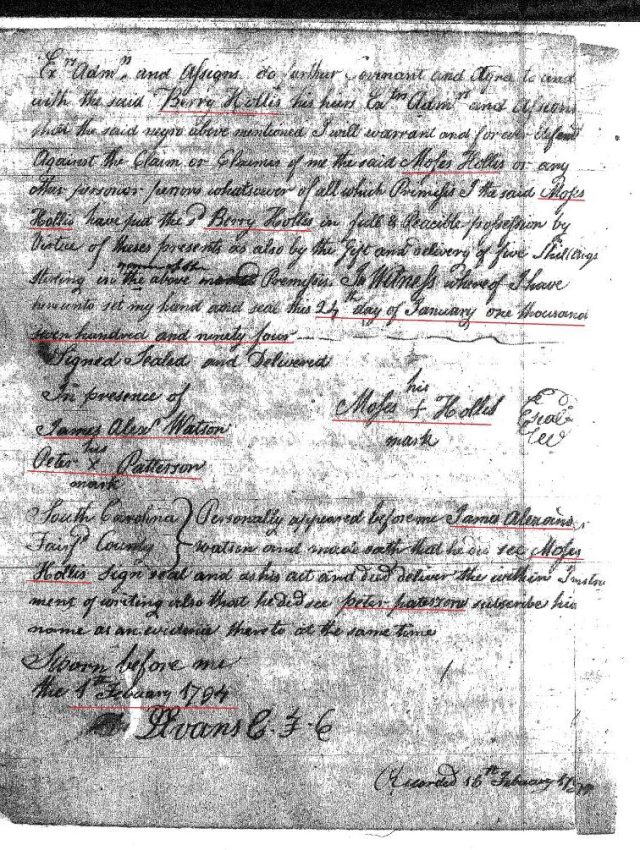 Exrs Admrs and Assigns do further Covenant and Agree to and
with the said Berry Hollis his heirs Exrs Admrs and Assigns
that the said negro above mentioned I will warrant and forever defend
Against the Claim or Claimes of me the said Moses Hollis or any
other person or persons whatsoever of all which Premises I the said Moses
Hollis have put the sd Berry Hollis in full & Peacible possession by
Virtue of theses presents as also by the Gift and delivery of five Shillings
Sterling in the above Premises. In Witness whereof I have
hereunto set my hand and seal this 24th day of January one thousand
seven hundred and ninety four
Signed Sealed and Delivered
In presence of
his
Moses + Hollis
mark
Seal
James Alexr Watson
his
Peter x Patterson
mark
South Carolina } Personally appeared before me James Alexand
Fairfd County } Watson and made oath that he did see Moses
Hollis sign seal and as his act and deed deliver the within Instru
ment of writing also that he did see peter paterson subscribe his
name as an evidence thereto at the same time
Sworn before me
the 1st February 1794
DEvans C. F. C
Recorded 16th February